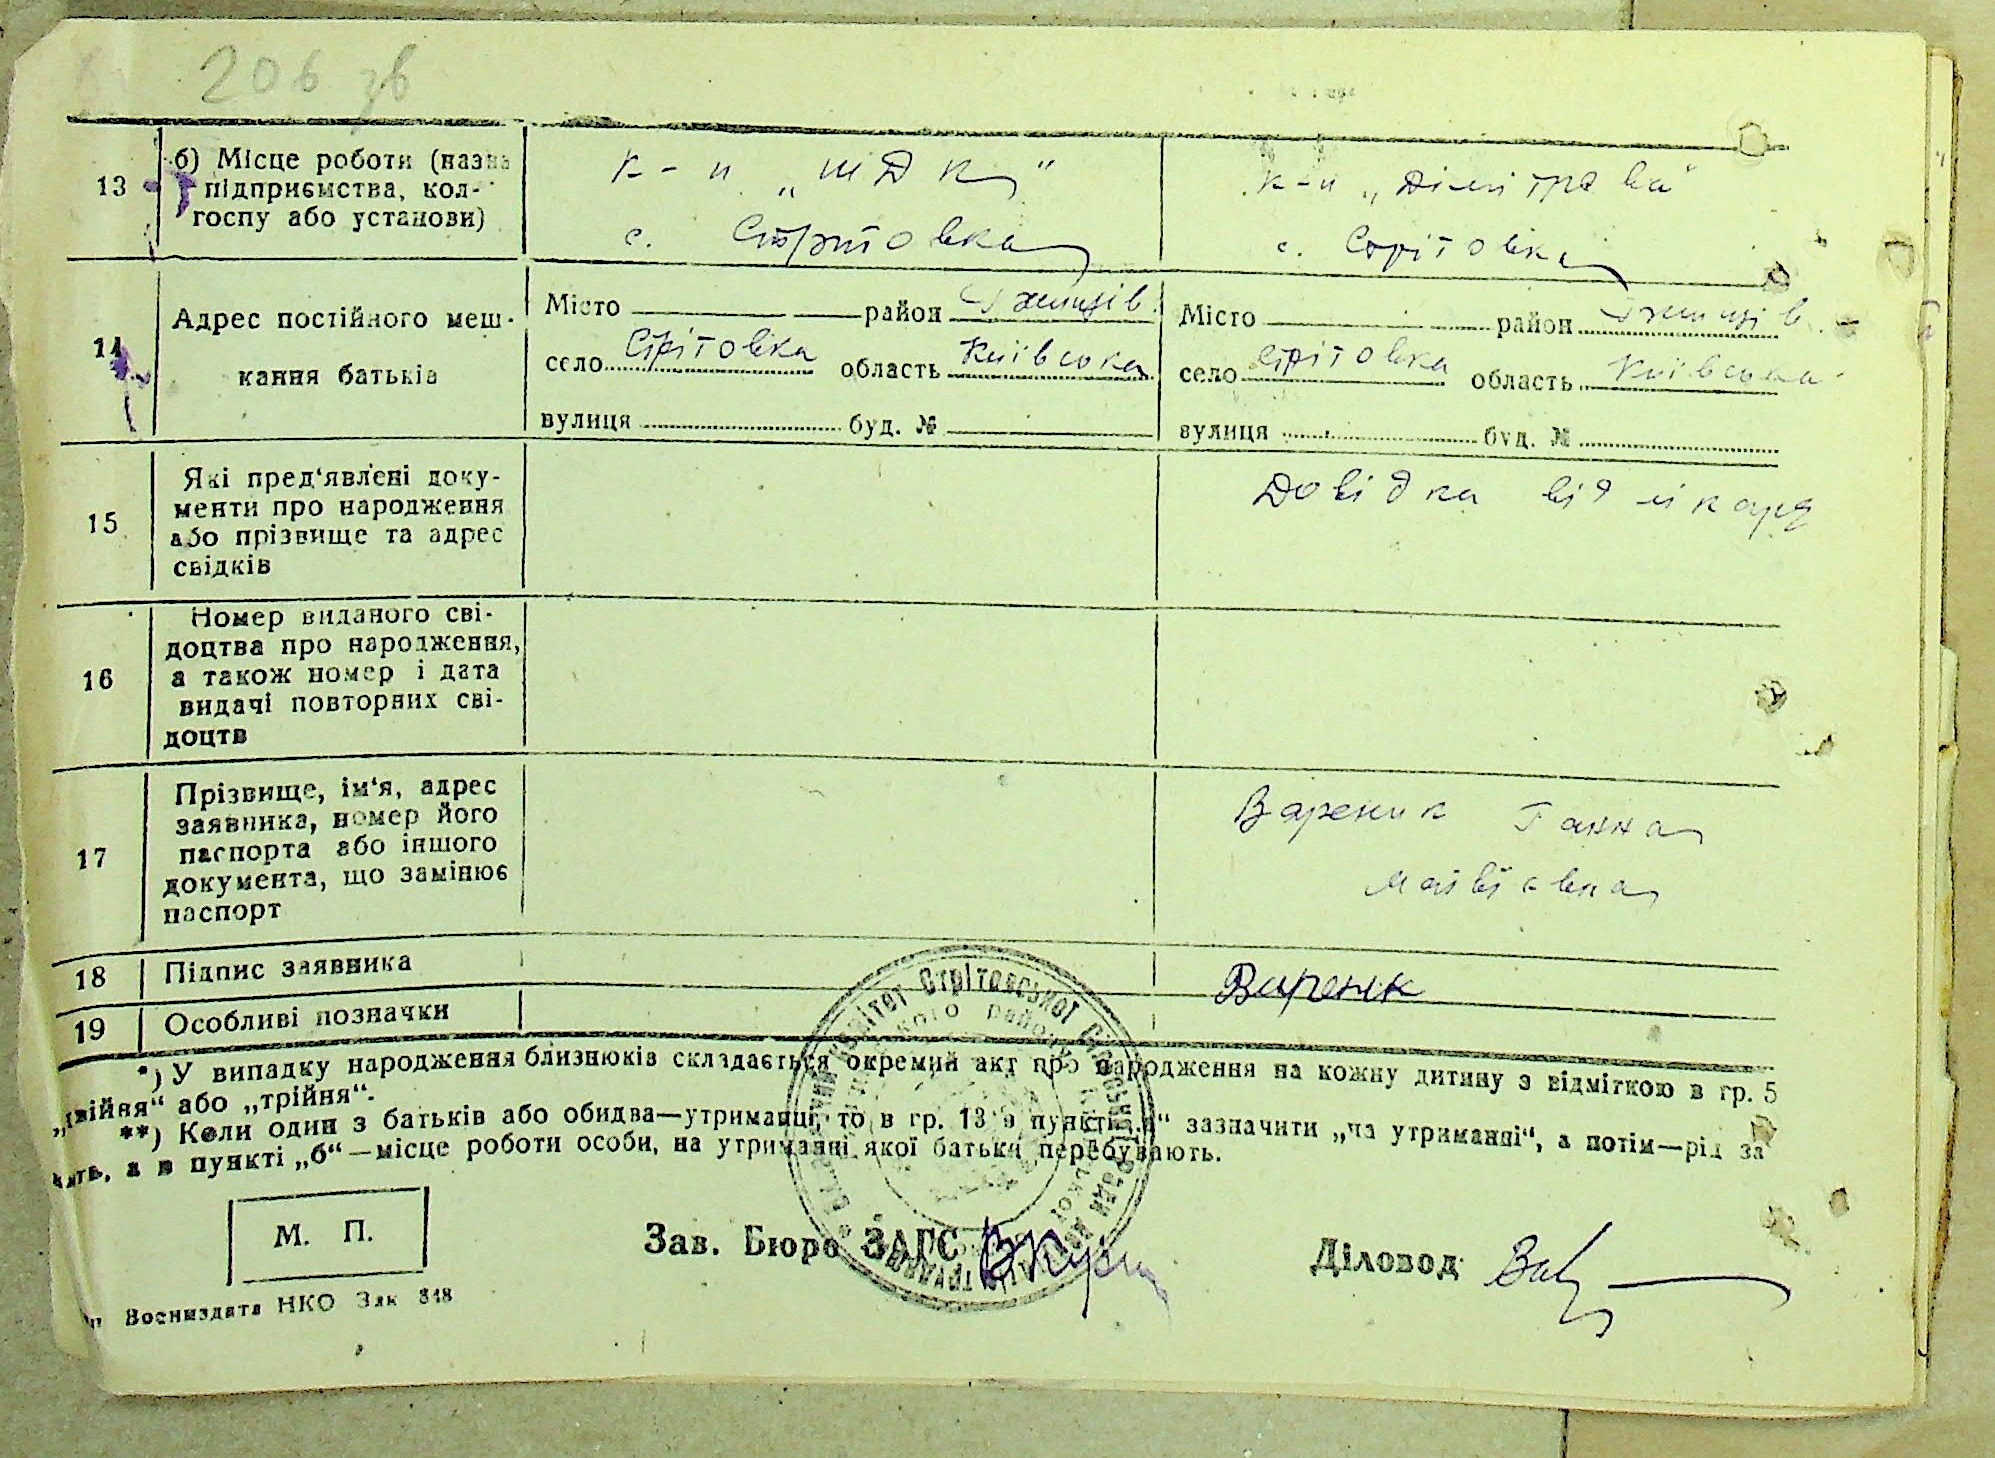 206 зв
13
б) Місце роботи (назва
підприємства, кол-
госпу або установи)
к-п „
с. Стрітовка
к-п „Дімітрова"
с. Стрітовка
14
Адрес постійного меш-
кання батьків
Місто район
село Стрітовка область Київська
вулиця буд. №
Місто район
село Стрітовка область Київська
вулиця буд. №
15
Які пред'явлені доку-
менти про народження
або прізвище та адрес
свідків
Довідка від лікаря
16
Номер виданого сві-
доцтва про народження,
а також номер і дата
видачі повторних сві-
доцтв
17
Прізвище, ім'я, адрес
заявника, номер його
паспорта або іншого
документа, що замінює
паспорт
Вареник Ганна
Матвієвна
18
Підпис заявника
Вареник
19
Особливі позначки
*) У випадку народження близнюків складається окремий акт про народження на кожну дитину з відміткою в гр. 5
„двійня“ або „трійня“.
**) Коли один з батьків або обидва—утриманці, то в гр. 13 в пункті „а“ зазначити „на утриманні“, а потім—рід за
нять, а в пункті „б“—місце роботи особи, на утриманні якої батьки перебувають.
М. П.
Зав. Бюро ЗАГС
Діловод
Воениздата НКО Зак 348
комітет Стрітовської Сільської Ради
району